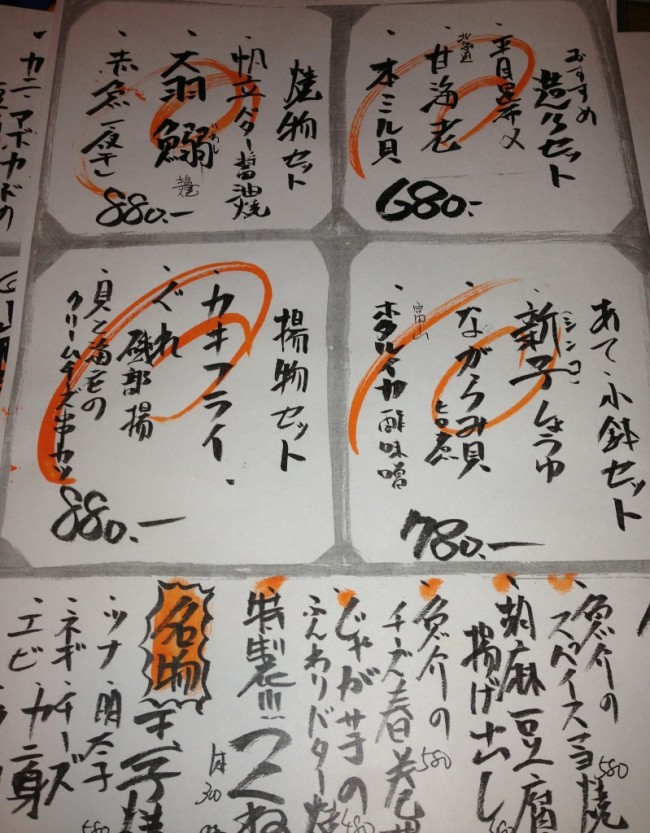 おすすめ
造りセット
・平目昆布〆
北海道
・甘海老
・本ミル貝
680.-
焼物セット
・帆立バター醤油焼
・大羽鰯
塩焼
・赤魚一夜干し
880.-
あて小鉢セット
(シンコ)
・新子しょうゆ
・ながらみ貝
旨煮
富山
・ホタルイカ酢味噌
780.-
揚物セット
・カキフライ
・ぐれ
磯部揚
・貝と海老の
クリームチーズ串カツ
880.-
・魚介の
スペイン
焼
580
・胡麻豆腐
揚げ出し
・魚介の
チーズ春巻
580
・じゃが芋の
ふんわりバター焼
・特製!!!つくね
名物
玉子焼
・ツナ明太子
・ネギチーズ
・エビ
カニ身
580
・カニアボカドの